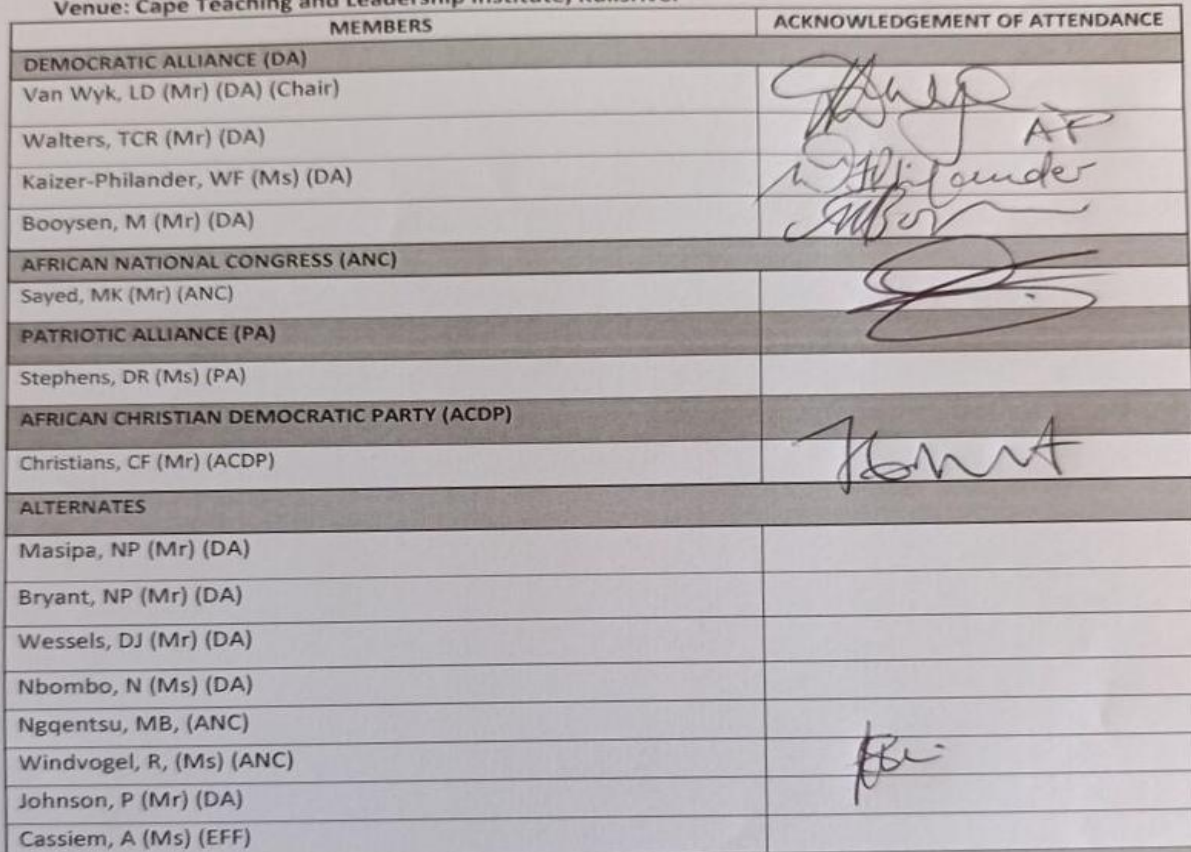 Venue: Cape Teaching and Leadership Institute,
MEMBERS ACKNOWLEDGEMENT OF ATTENDANCE
DEMOCRATIC ALLIANCE (DA)
Van Wyk, LD (Mr) (DA) (Chair)
Walters, TCR (Mr) (DA) AP
Kaizer-Philander, WF (Ms) (DA)
Booysen, M (Mr) (DA)
AFRICAN NATIONAL CONGRESS (ANC)
Sayed, MK (Mr) (ANC)
PATRIOTIC ALLIANCE (PA)
Stephens, DR (Ms) (PA)
AFRICAN CHRISTIAN DEMOCRATIC PARTY (ACDP)
Christians, CF (Mr) (ACDP)
ALTERNATES
Masipa, NP (Mr) (DA)
Bryant, NP (Mr) (DA)
Wessels, DJ (Mr) (DA)
Nbombo, N (Ms) (DA)
Ngqentsu, MB, (ANC)
Windvogel, R, (Ms) (ANC)
Johnson, P (Mr) (DA)
Cassiem, A (Ms) (EFF)